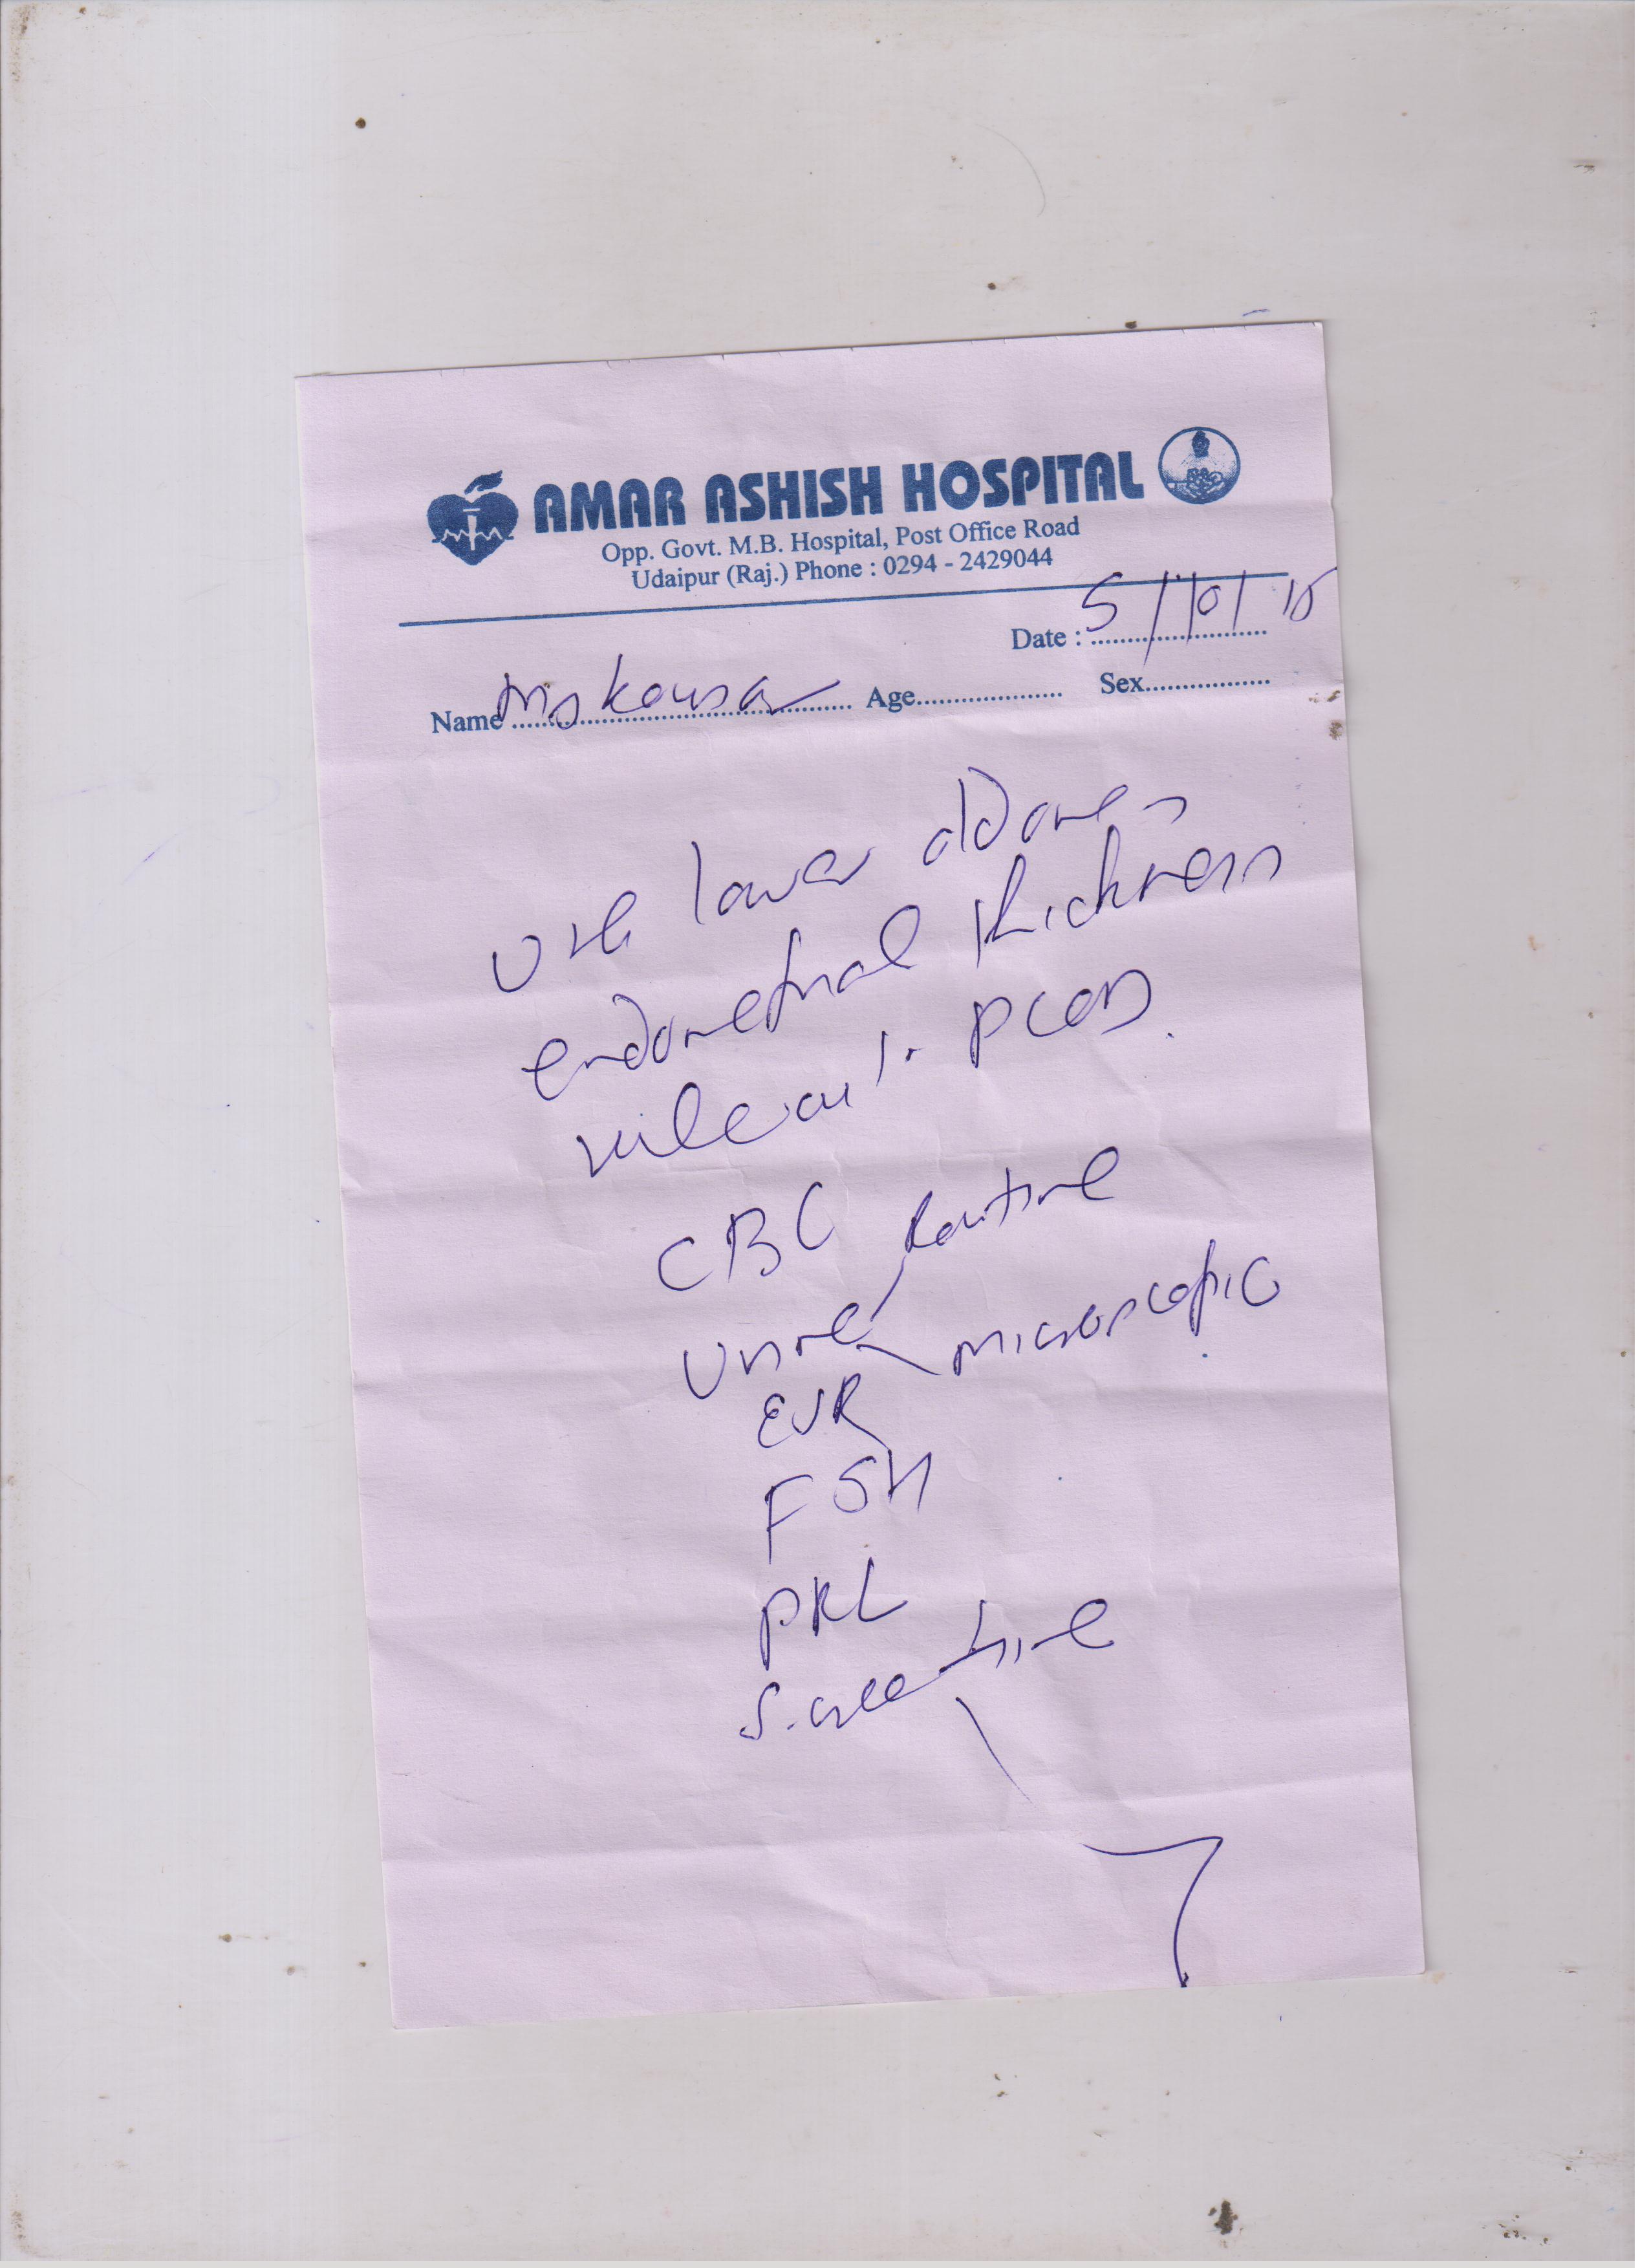 AMAR ASHISH HOSPITAL
Opp. Govt. M.B. Hospital, Post Office Road
Udaipur (Raj.) Phone : 0294 - 2429044
Date : 5/10/15
Name Ms Kousar Age Sex
lower abdomen
endometrial thickness
PCOD
CBC
Urine Routine
microscopic
ESR
FSH
PRL
S. creatinine